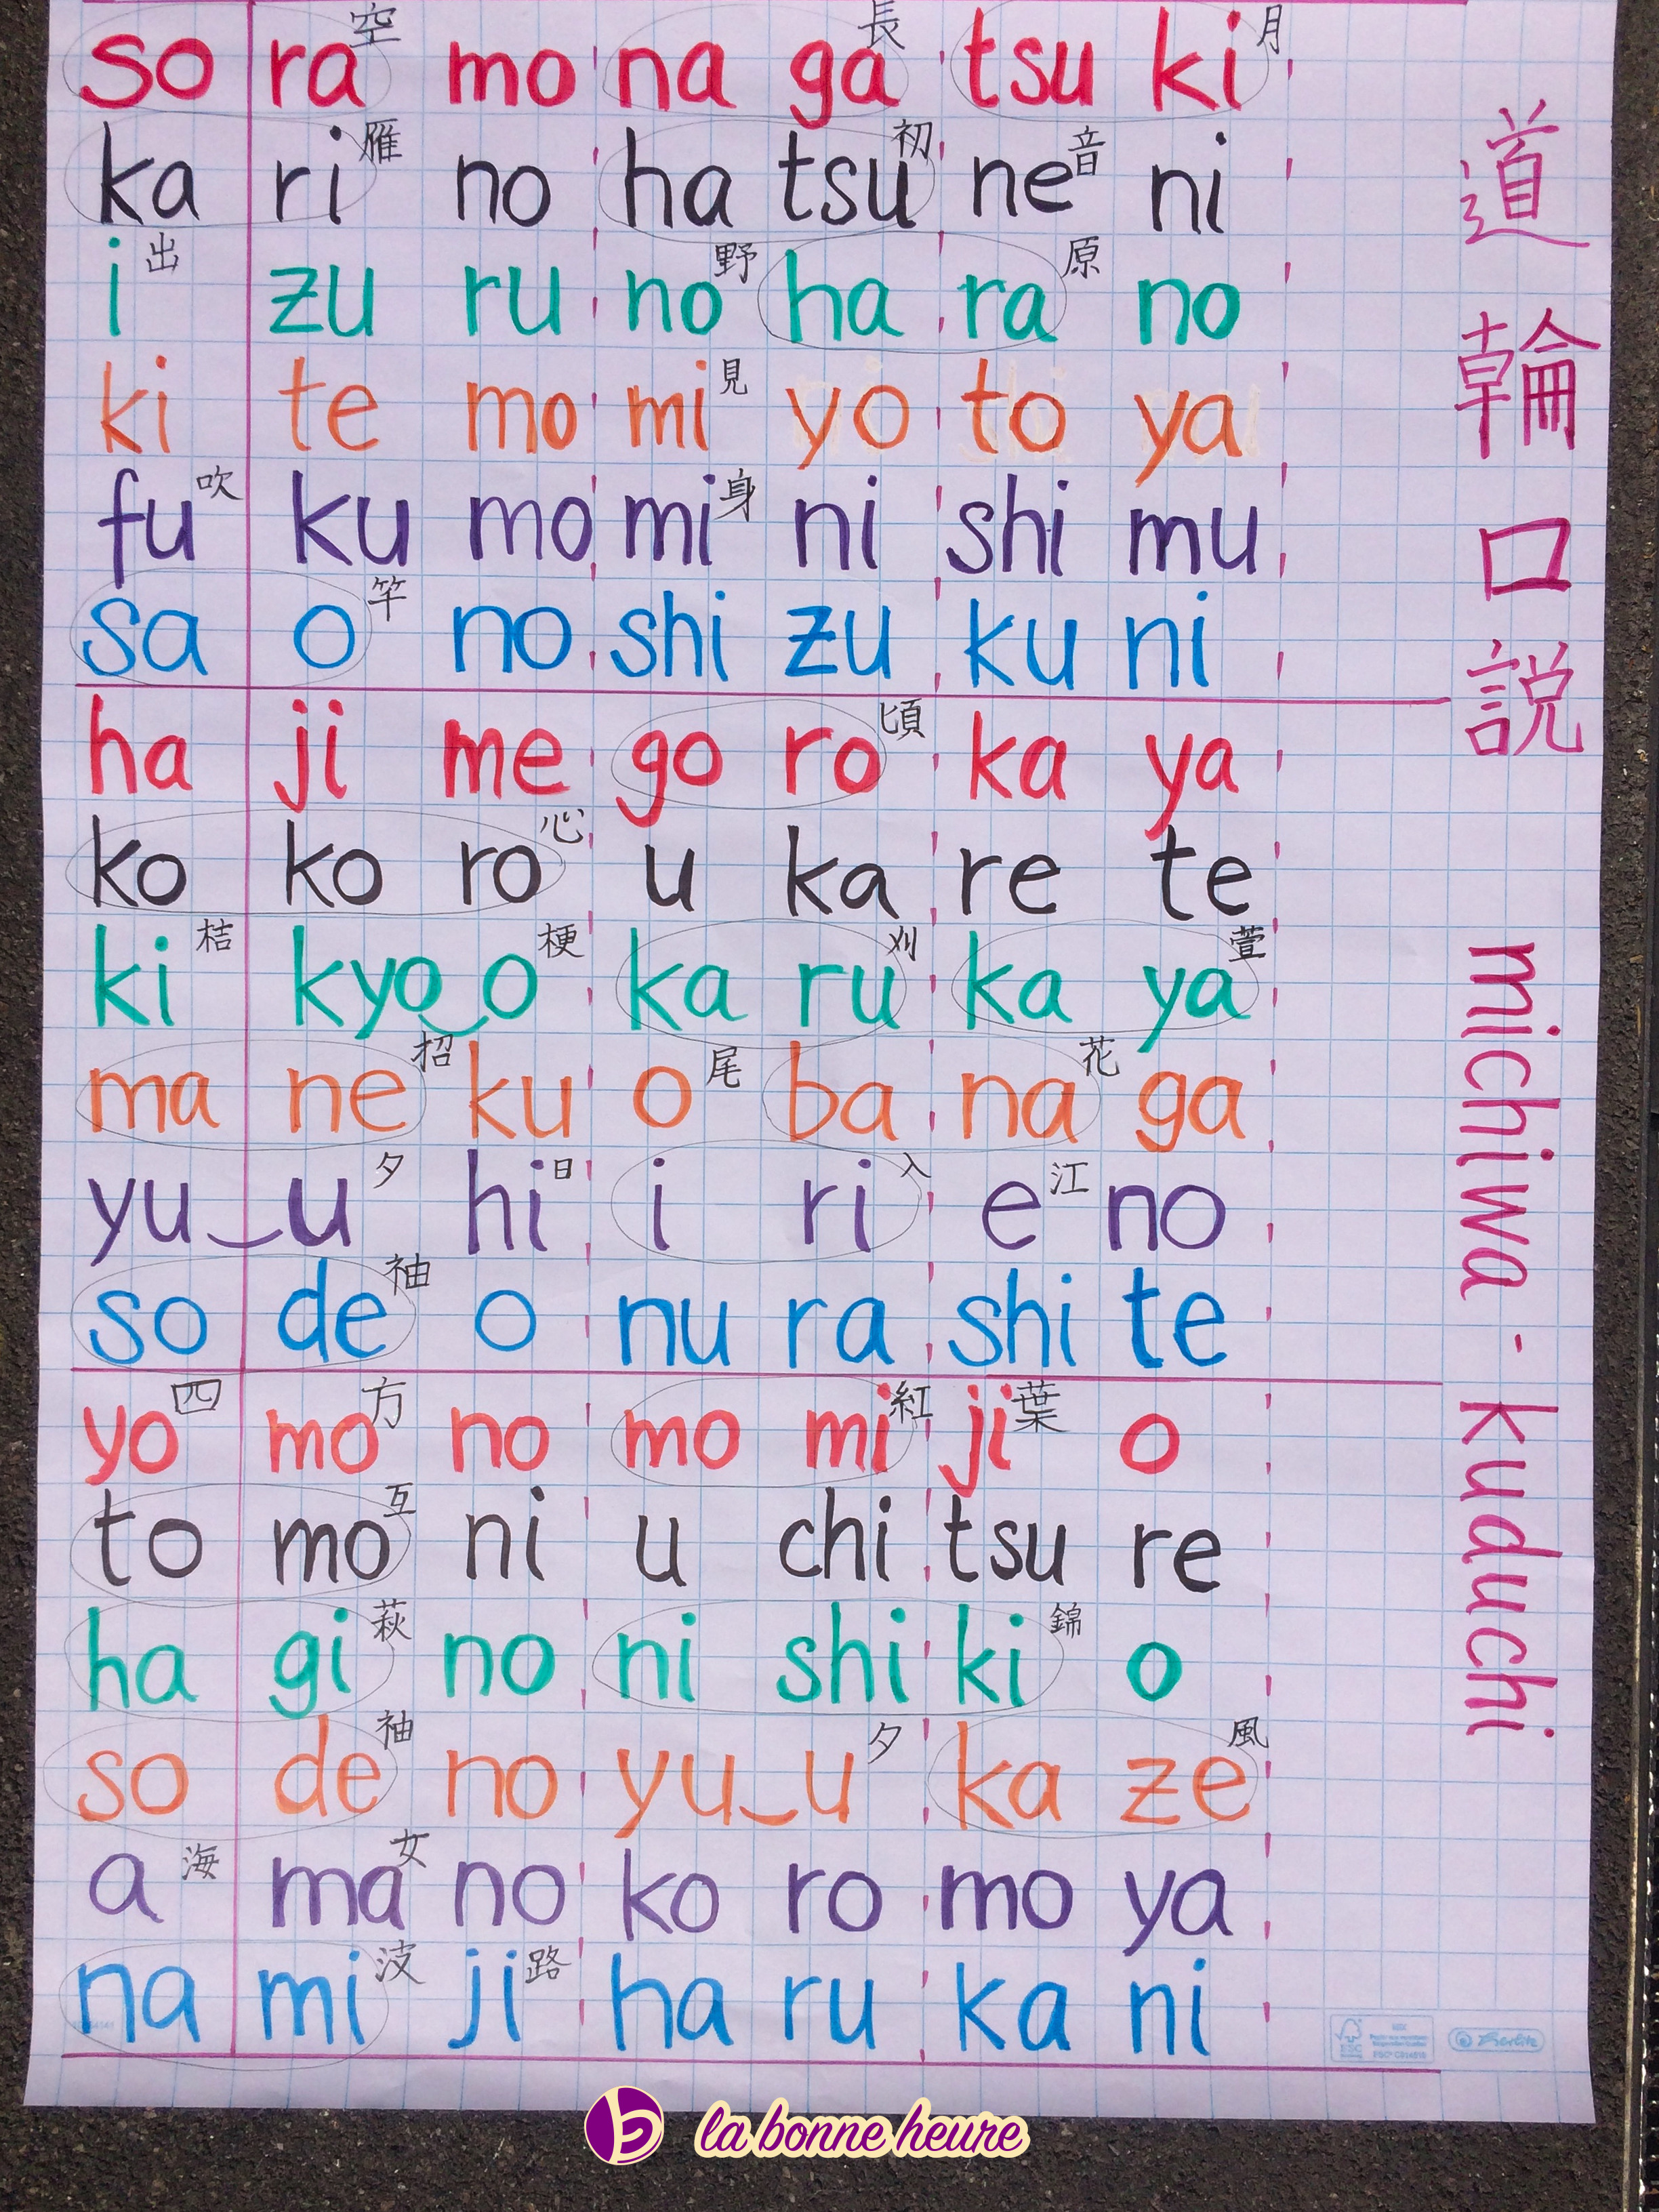 so ra空 mo na ga長 tsu ki月
ka ri雁 no ha tsu初 ne音 ni
i出 zu ru no野 ha ra原 no
ki te mo mi見 yo to ya
fu吹 ku mo mi身 ni shi mu
sa o竿 no shi zu ku ni
ha ji me go ro頃 ka ya
ko ko ro心 u ka re te
ki桔 kyo o梗 ka ru刈 ka ya萱
ma ne招 ku o尾 ba na花 ga
yu u夕 hi日 i ri入 e江 no
so de袖 o nu ra shi te
yo四 mo方 no mo mi紅 ji葉 o
to mo互 ni u chi tsu re
ha gi萩 no ni shi ki錦 o
so de袖 no yu u夕 ka ze風
a海 ma女 no ko ro mo ya
na mi波 ji路 ha ru ka ni
道輪口説
michiwa - kuduchi
FSC
Herlitz
b la bonne heure